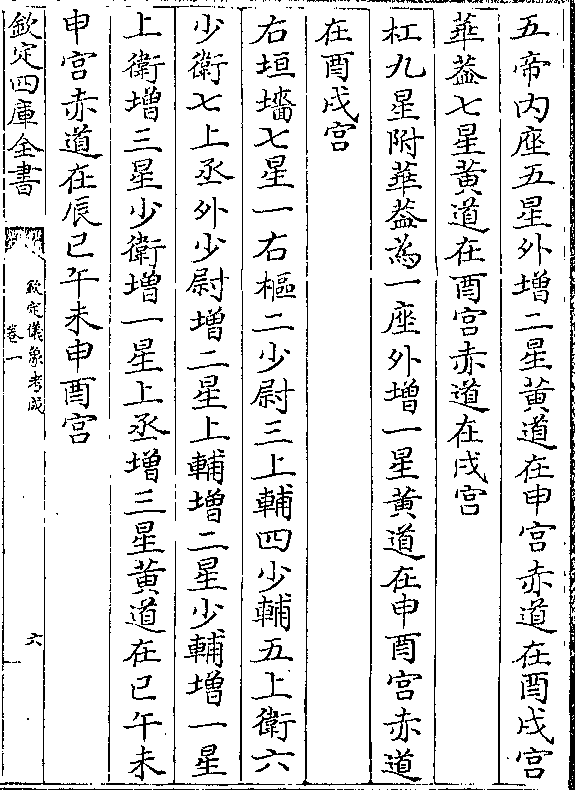 五帝内座五星外增二星黄道在申宫赤道在酉戌宫
華葢七星黄道在酉宫赤道在戌宫
杠九星附華葢為一座外增一星黄道在申酉宫赤道
在酉戌宫
右垣墻七星一右樞二少尉三上輔四少輔五上衛六
少衛七上丞外少尉增二星上輔增二星少輔增一星
上衛增三星少衛增一星上丞增三星黄道在巳午未
申宫赤道在辰巳午未申酉宫
欽定四庫全書
欽定儀象考成
卷一
六